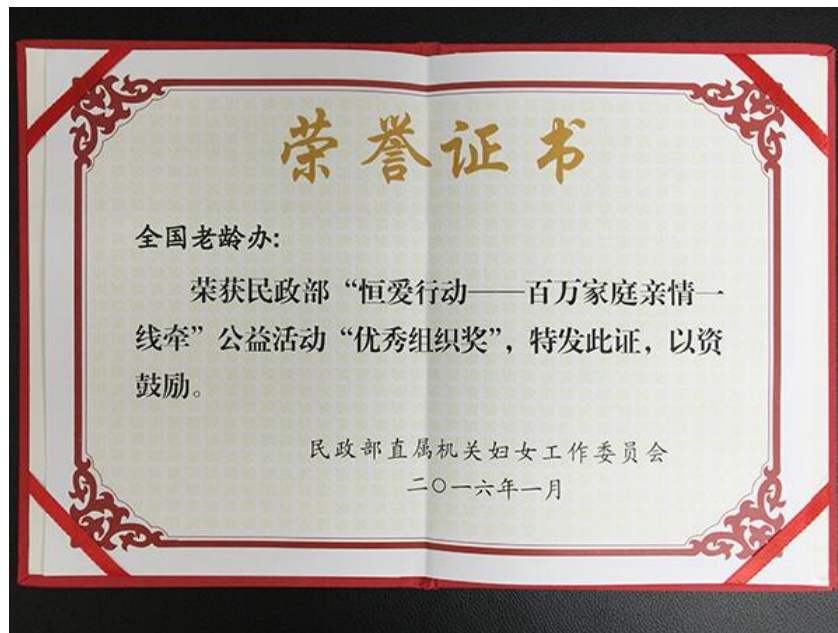 荣誉证书
全国老龄办:
荣获民政部“恒爱行动——百万家庭亲情一
线牵”公益活动“优秀组织奖”,特发此证,以资
鼓励。
民政部直属机关妇女工作委员会
二〇一六年一月